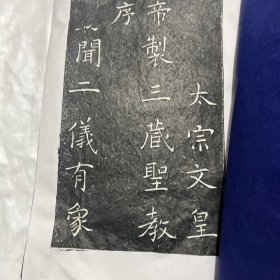 太宗文皇
帝製三藏聖教
序
聞二儀有象